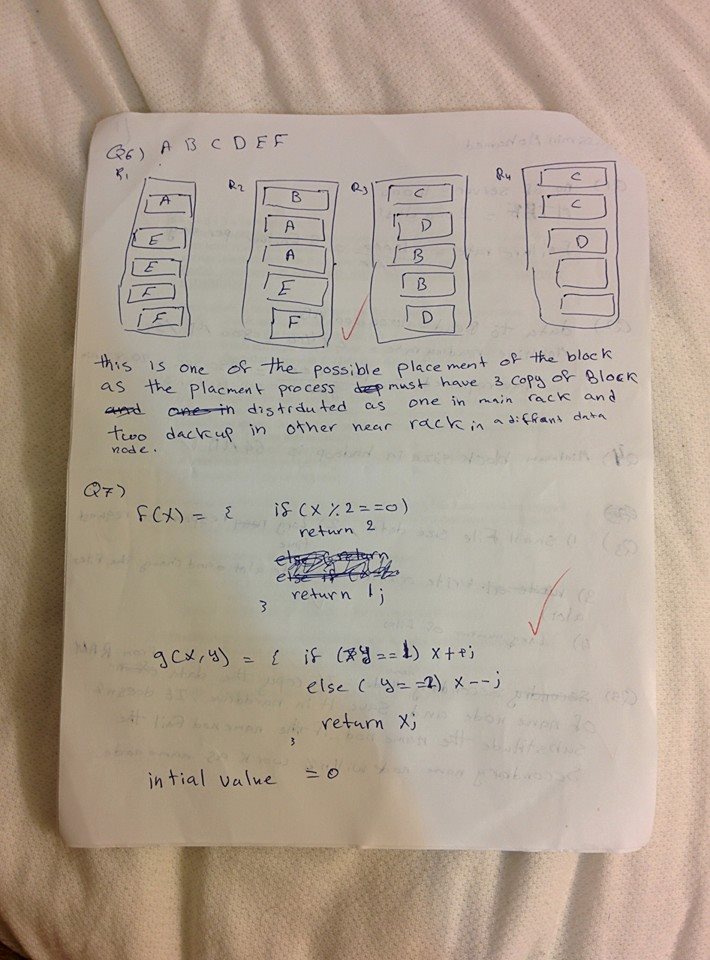 Q6) A B C D E F
R1 R2 R3 R4
A B C C
E A D C
E A B D
E E B
F F D
this is one of the possible placement of the block
as the placment process must have 3 copy of Block
and one in distrduted as one in main rack and
two dackup in other near rack in a diffrant data
node.
Q7)
f(x) = { if (x % 2 == 0)
return 2
else return
return 1;
}
g(x,y) = { if (y == 1) x++;
else (y == 2) x--;
return x;
}
intial value = 0